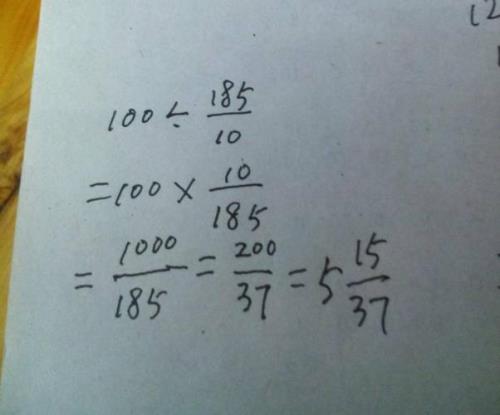 (2
100 ÷ 185/10
= 100 × 10/185
= 1000/185 = 200/37 = 5 15/37